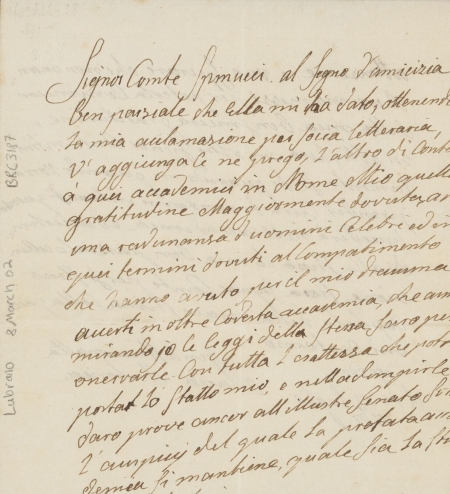 Signor Comte Spinucci al segno d'amicizia
ben parziale che Ella mi ha dato, ottenendo
la mia acclamazione per socia letteraria,
v'aggiunga le ne prego, l'altro di Conte
à quei accademici in Nome Mio quella
gratitudine Maggiormente dovuta ad
una radunanza d'uomini Celebri ed in
quei termini dovuti al Compatimento
che hanno avuto per il mio dramma
averti inoltre Codesta accademia, che am
mirando io le leggi della stessa sarò per
osservarle Con tutta l'esattezza che potrà
portar lo stato mio, e nell'adempirle
darò prove ancor all'illustre Senato
l'auspicj del quale la prefata acca
demia si mantiene, quale sia la sti
Lubrano 8 March 02 BRC3187